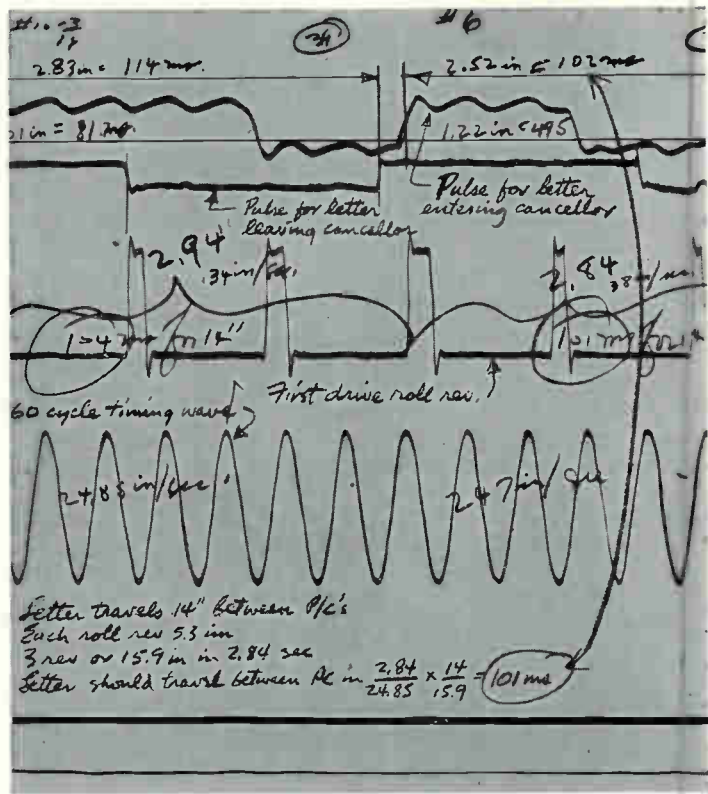 #6
2.83 in = 114 ms.
2.52 in = 102 ms
1.22 in = 495
Pulse for letter
leaving cancellor
Pulse for letter
entering cancellor
2.94
.34 in/sec.
2.84
for 14"
First drive roll rev.
60 cycle timing wave
24.85 in/sec
24.7 in/sec
Letter travels 14" between P/C's
Each roll rev 5.3 in
3 rev or 15.9 in in 2.84 sec
Letter should travel between PC in 2.84/24.85 x 14/15.9 = 101 ms